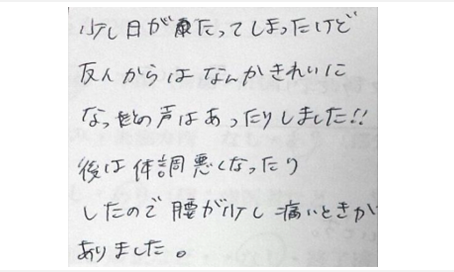 少し日がたってしまったけど
友人からはなんかきれいに
なったとの声はあったりしました!!
後は体調悪くなったり
したので腰が少し痛いときが
ありました。